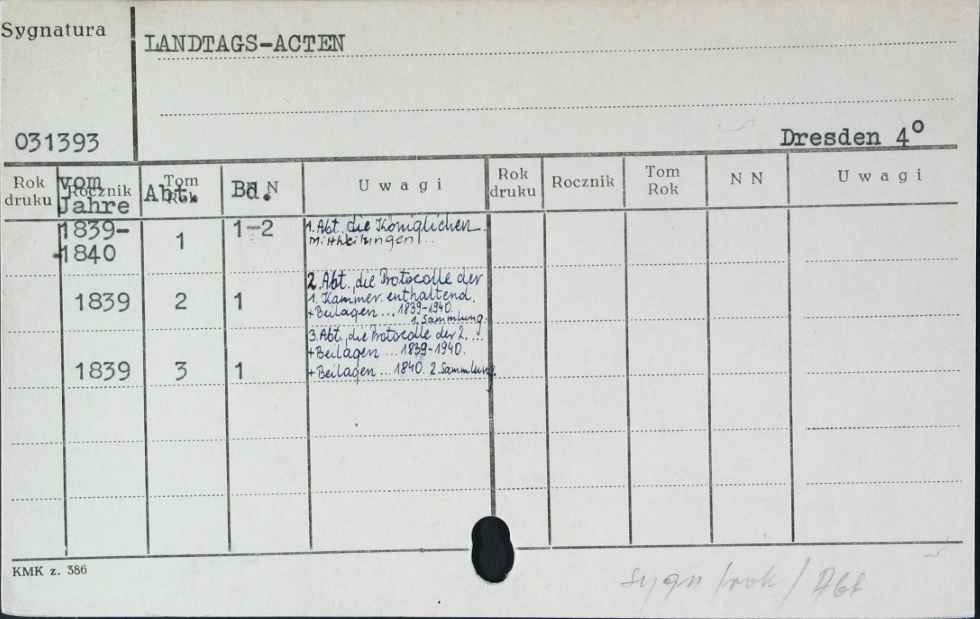 Sygnatura
LANDTAGS-ACTEN
031393
Dresden 4°
Rok druku
Rocznik
vom Jahre
Tom Rok
Abt.
NN
Bd.
Uwagi
Rok druku
Rocznik
Tom Rok
NN
Uwagi
1839-1840 1 1-2 1. Abt. die Königlichen
Mittheilungen ...
2. Abt. die Protocolle der
1839 2 1 1. Kammer enthaltend.
+Beilagen ... 1839-1940.
1. Sammlung.
3. Abt. die Protocolle der 2. ...
+Beilagen ... 1839-1940.
1839 3 1 +Beilagen ... 1840. 2 Sammlung.
KMK z. 386
sygn / rok / Abt